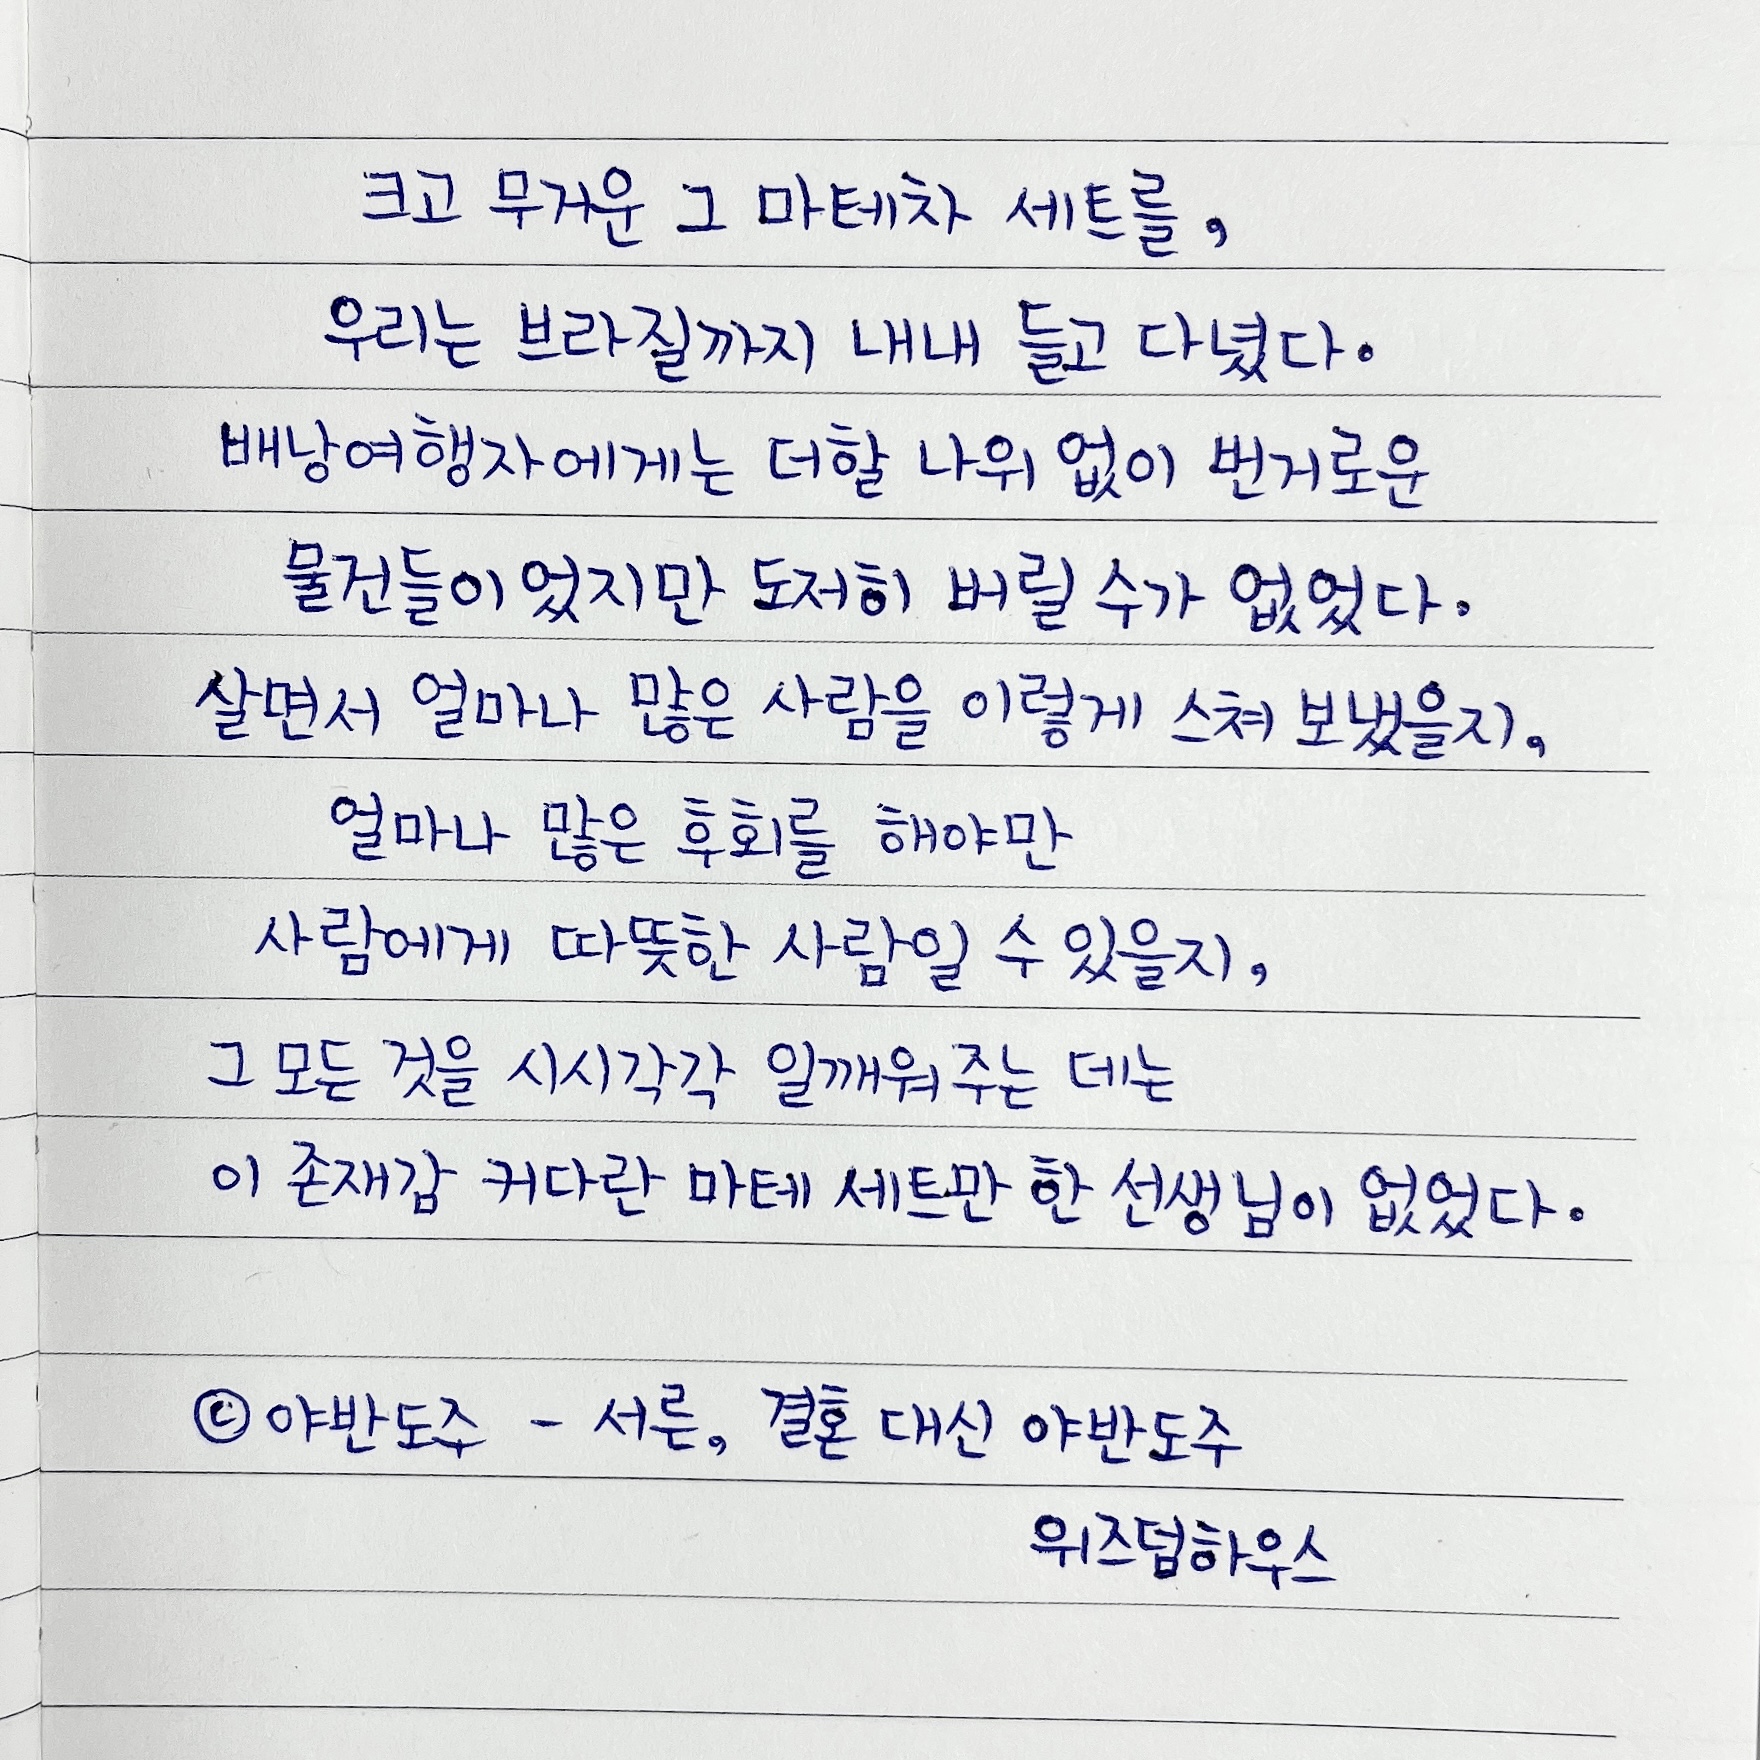 크고 무거운 그 마테차 세트를,
우리는 브라질까지 내내 들고 다녔다.
배낭여행자에게는 더할 나위 없이 번거로운
물건들이었지만 도저히 버릴 수가 없었다.
살면서 얼마나 많은 사람을 이렇게 스쳐 보냈을지,
얼마나 많은 후회를 해야만
사람에게 따뜻한 사람일 수 있을지,
그 모든 것을 시시각각 일깨워주는 데는
이 존재감 커다란 마테 세트만 한 선생님이 없었다.
©야반도주 - 서른, 결혼 대신 야반도주
위즈덤하우스